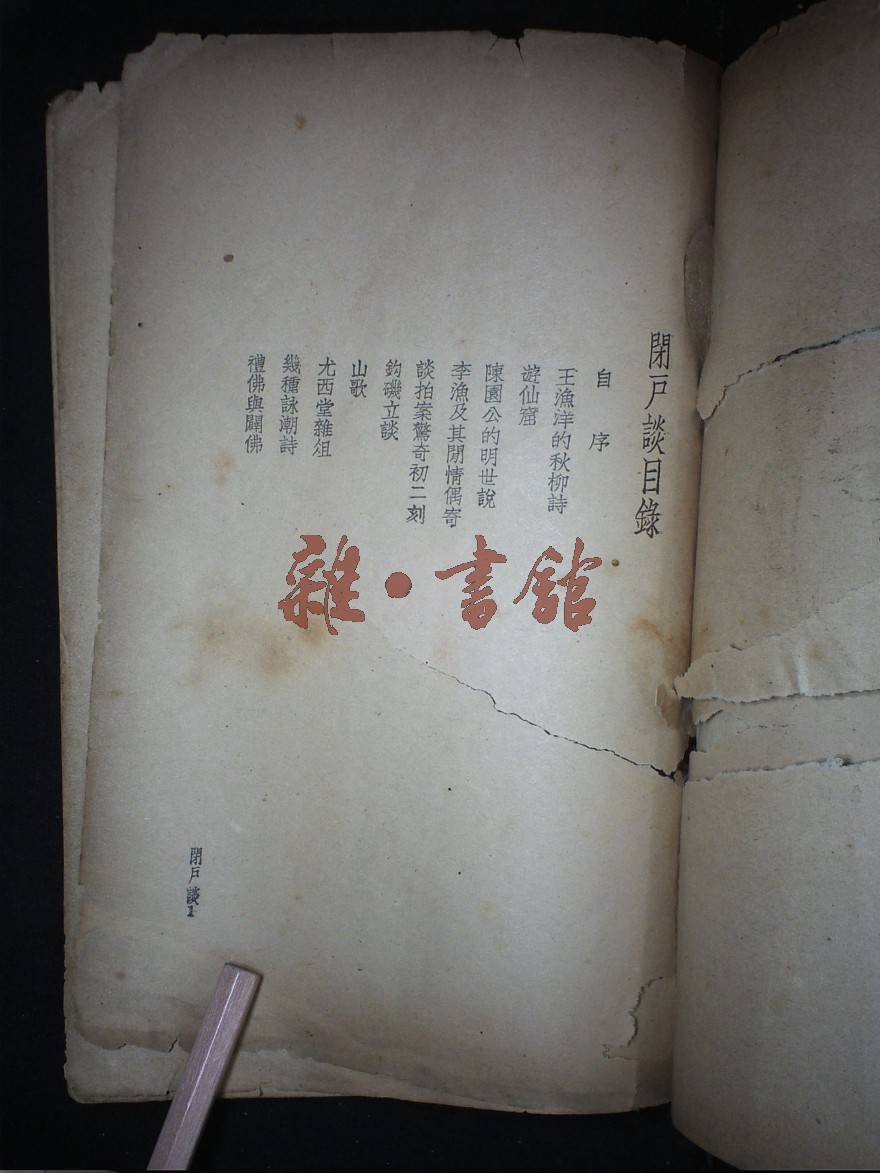 閉戸談目錄
自序
王漁洋的秋柳詩
遊仙窟
陳園公的明世說
李漁及其閒情偶寄
談拍案驚奇初二刻
鈎磯立談
山歌
尤西堂雜俎
幾種詠潮詩
禮佛與闢佛
雜·書館
閉戸談1